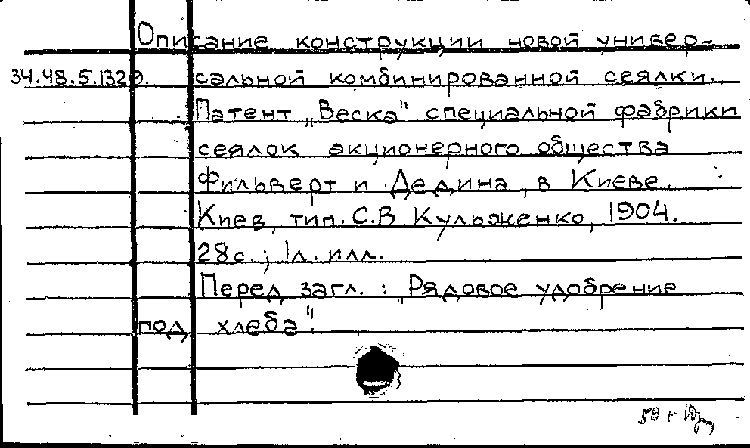 Описание конструкции новой универ-
34.48.5.1320. сальной комбинированной сеялки.
Патент „Веска" специальной фабрики
сеялок акционерного общества
Фильверт и Дедина, в Киеве.
Киев, тип. С.В Кульженко, 1904.
28с.; 1л. илл.
Перед загл.: „Рядовое удобрение
под хлеба".